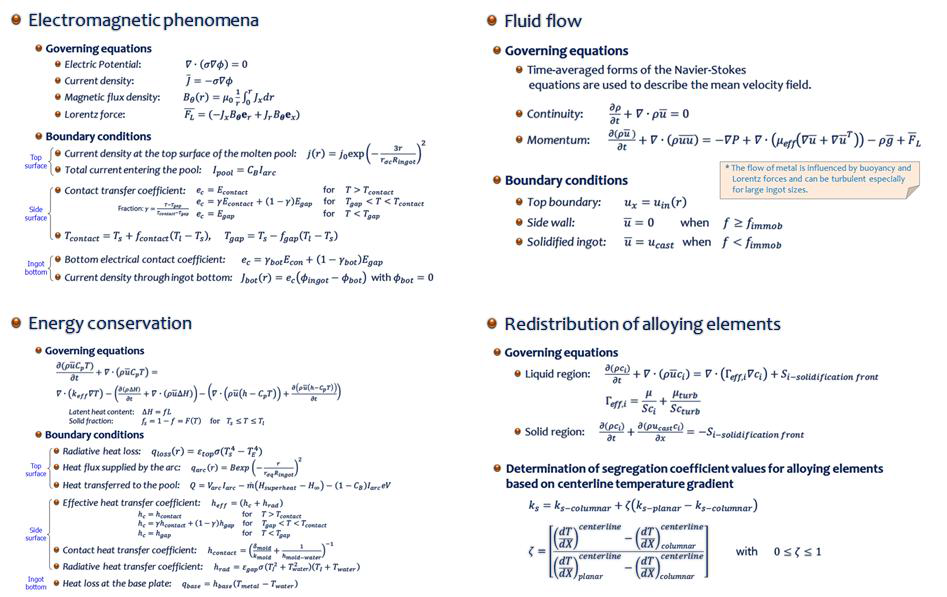 Electromagnetic phenomena
Governing equations
Electric Potential: ∇ · (σ∇ϕ) = 0
Current density: J̄ = −σ∇ϕ
Magnetic flux density: B_θ(r) = μ₀ (1/r) ∫₀^r J_x dr
Lorentz force: F̄_L = (−J_x B_θ e_r + J_r B_θ e_x)
Boundary conditions
Top surface
Current density at the top surface of the molten pool: j(r) = j₀ exp(−3r / (r_ec R_ingot))²
Total current entering the pool: I_pool = C_B I_arc
Side surface
Contact transfer coefficient: e_c = E_contact for T > T_contact
Fraction: γ = (T−T_gap)/(T_contact−T_gap) e_c = γE_contact + (1 − γ)E_gap for T_gap < T < T_contact
e_c = E_gap for T < T_gap
T_contact = T_s + f_contact(T_l − T_s), T_gap = T_s − f_gap(T_l − T_s)
Ingot bottom
Bottom electrical contact coefficient: e_c = γ_bot E_con + (1 − γ_bot)E_gap
Current density through ingot bottom: J_bot(r) = e_c(ϕ_ingot − ϕ_bot) with ϕ_bot = 0
Fluid flow
Governing equations
Time-averaged forms of the Navier-Stokes
equations are used to describe the mean velocity field.
Continuity: ∂ρ/∂t + ∇ · ρū = 0
Momentum: ∂(ρū)/∂t + ∇ · (ρūū) = −∇P + ∇ · (μ_eff(∇ū + ∇ū^T)) − ρḡ + F̄_L
* The flow of metal is influenced by buoyancy and
Lorentz forces and can be turbulent especially
for large ingot sizes.
Boundary conditions
Top boundary: u_x = u_in(r)
Side wall: ū = 0 when f ≥ f_immob
Solidified ingot: ū = u_cast when f < f_immob
Energy conservation
Governing equations
∂(ρūC_pT)/∂t + ∇ · (ρūC_pT) =
∇ · (k_eff∇T) − (∂(ρΔH)/∂t + ∇ · (ρūΔH)) − (∇ · (ρū(h − C_pT)) + ∂(ρū(h−C_pT))/∂t)
Latent heat content: ΔH = fL
Solid fraction: f_s = 1 − f = F(T) for T_s ≤ T ≤ T_l
Boundary conditions
Top surface
Radiative heat loss: q_loss(r) = ε_top σ(T_s⁴ − T_E⁴)
Heat flux supplied by the arc: q_arc(r) = Bexp(−r / (r_eq R_ingot))²
Heat transferred to the pool: Q = V_arc I_arc − ṁ(H_superheat − H_∞) − (1 − C_B)I_arc eV
Side surface
Effective heat transfer coefficient: h_eff = (h_c + h_rad)
h_c = h_contact for T > T_contact
h_c = γh_contact + (1 − γ)h_gap for T_gap < T < T_contact
h_c = h_gap for T < T_gap
Contact heat transfer coefficient: h_contact = (δ_mold/k_mold + 1/h_mold−water)⁻¹
Radiative heat transfer coefficient: h_rad = ε_gap σ(T_l² + T_water²)(T_l + T_water)
Ingot bottom
Heat loss at the base plate: q_base = h_base(T_metal − T_water)
Redistribution of alloying elements
Governing equations
Liquid region: ∂(ρc_i)/∂t + ∇ · (ρūc_i) = ∇ · (Γ_eff,i∇c_i) + S_i−solidification front
Γ_eff,i = μ/Sc_i + μ_turb/Sc_turb
Solid region: ∂(ρc_i)/∂t + ∂(ρu_cast c_i)/∂x = −S_i−solidification front
Determination of segregation coefficient values for alloying elements
based on centerline temperature gradient
k_s = k_s−columnar + ζ(k_s−planar − k_s−columnar)
ζ = [((dT/dX)^centerline − (dT/dX)^centerline_columnar) / ((dT/dX)^centerline_planar − (dT/dX)^centerline_columnar)] with 0 ≤ ζ ≤ 1